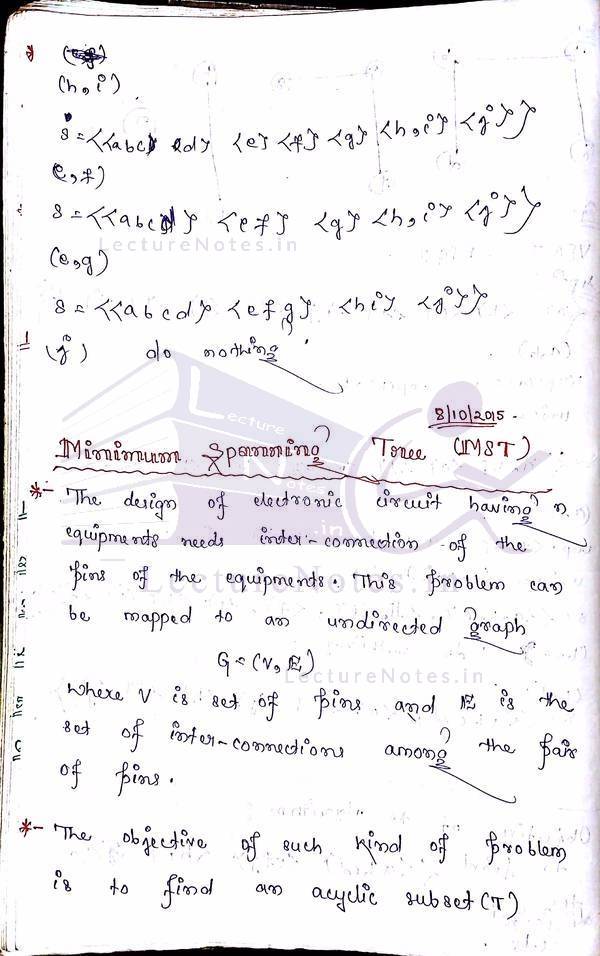 (h,i)
S = {{abc} {d} {e} {f} {g} {h,i} {j}}
(e,f)
S = {{abcd} {ef} {g} {h,i} {j}}
LectureNotes.in
(e,g)
S = {{abcd} {efg} {hi} {j}}
(j) do nothing
Lecture
8/10/2015
Minimum Spanning Tree (MST)
*- The design of electronic circuit having n
equipments needs inter-connection of the
pins of the equipments. This problem can
LectureNotes.in
be mapped to an undirected graph
G = (V,E)
LectureNotes.in
where V is set of pins and E is the
set of inter-connections among the pair
of pins.
*- The objective of such kind of problem
is to find an acyclic subset (T)